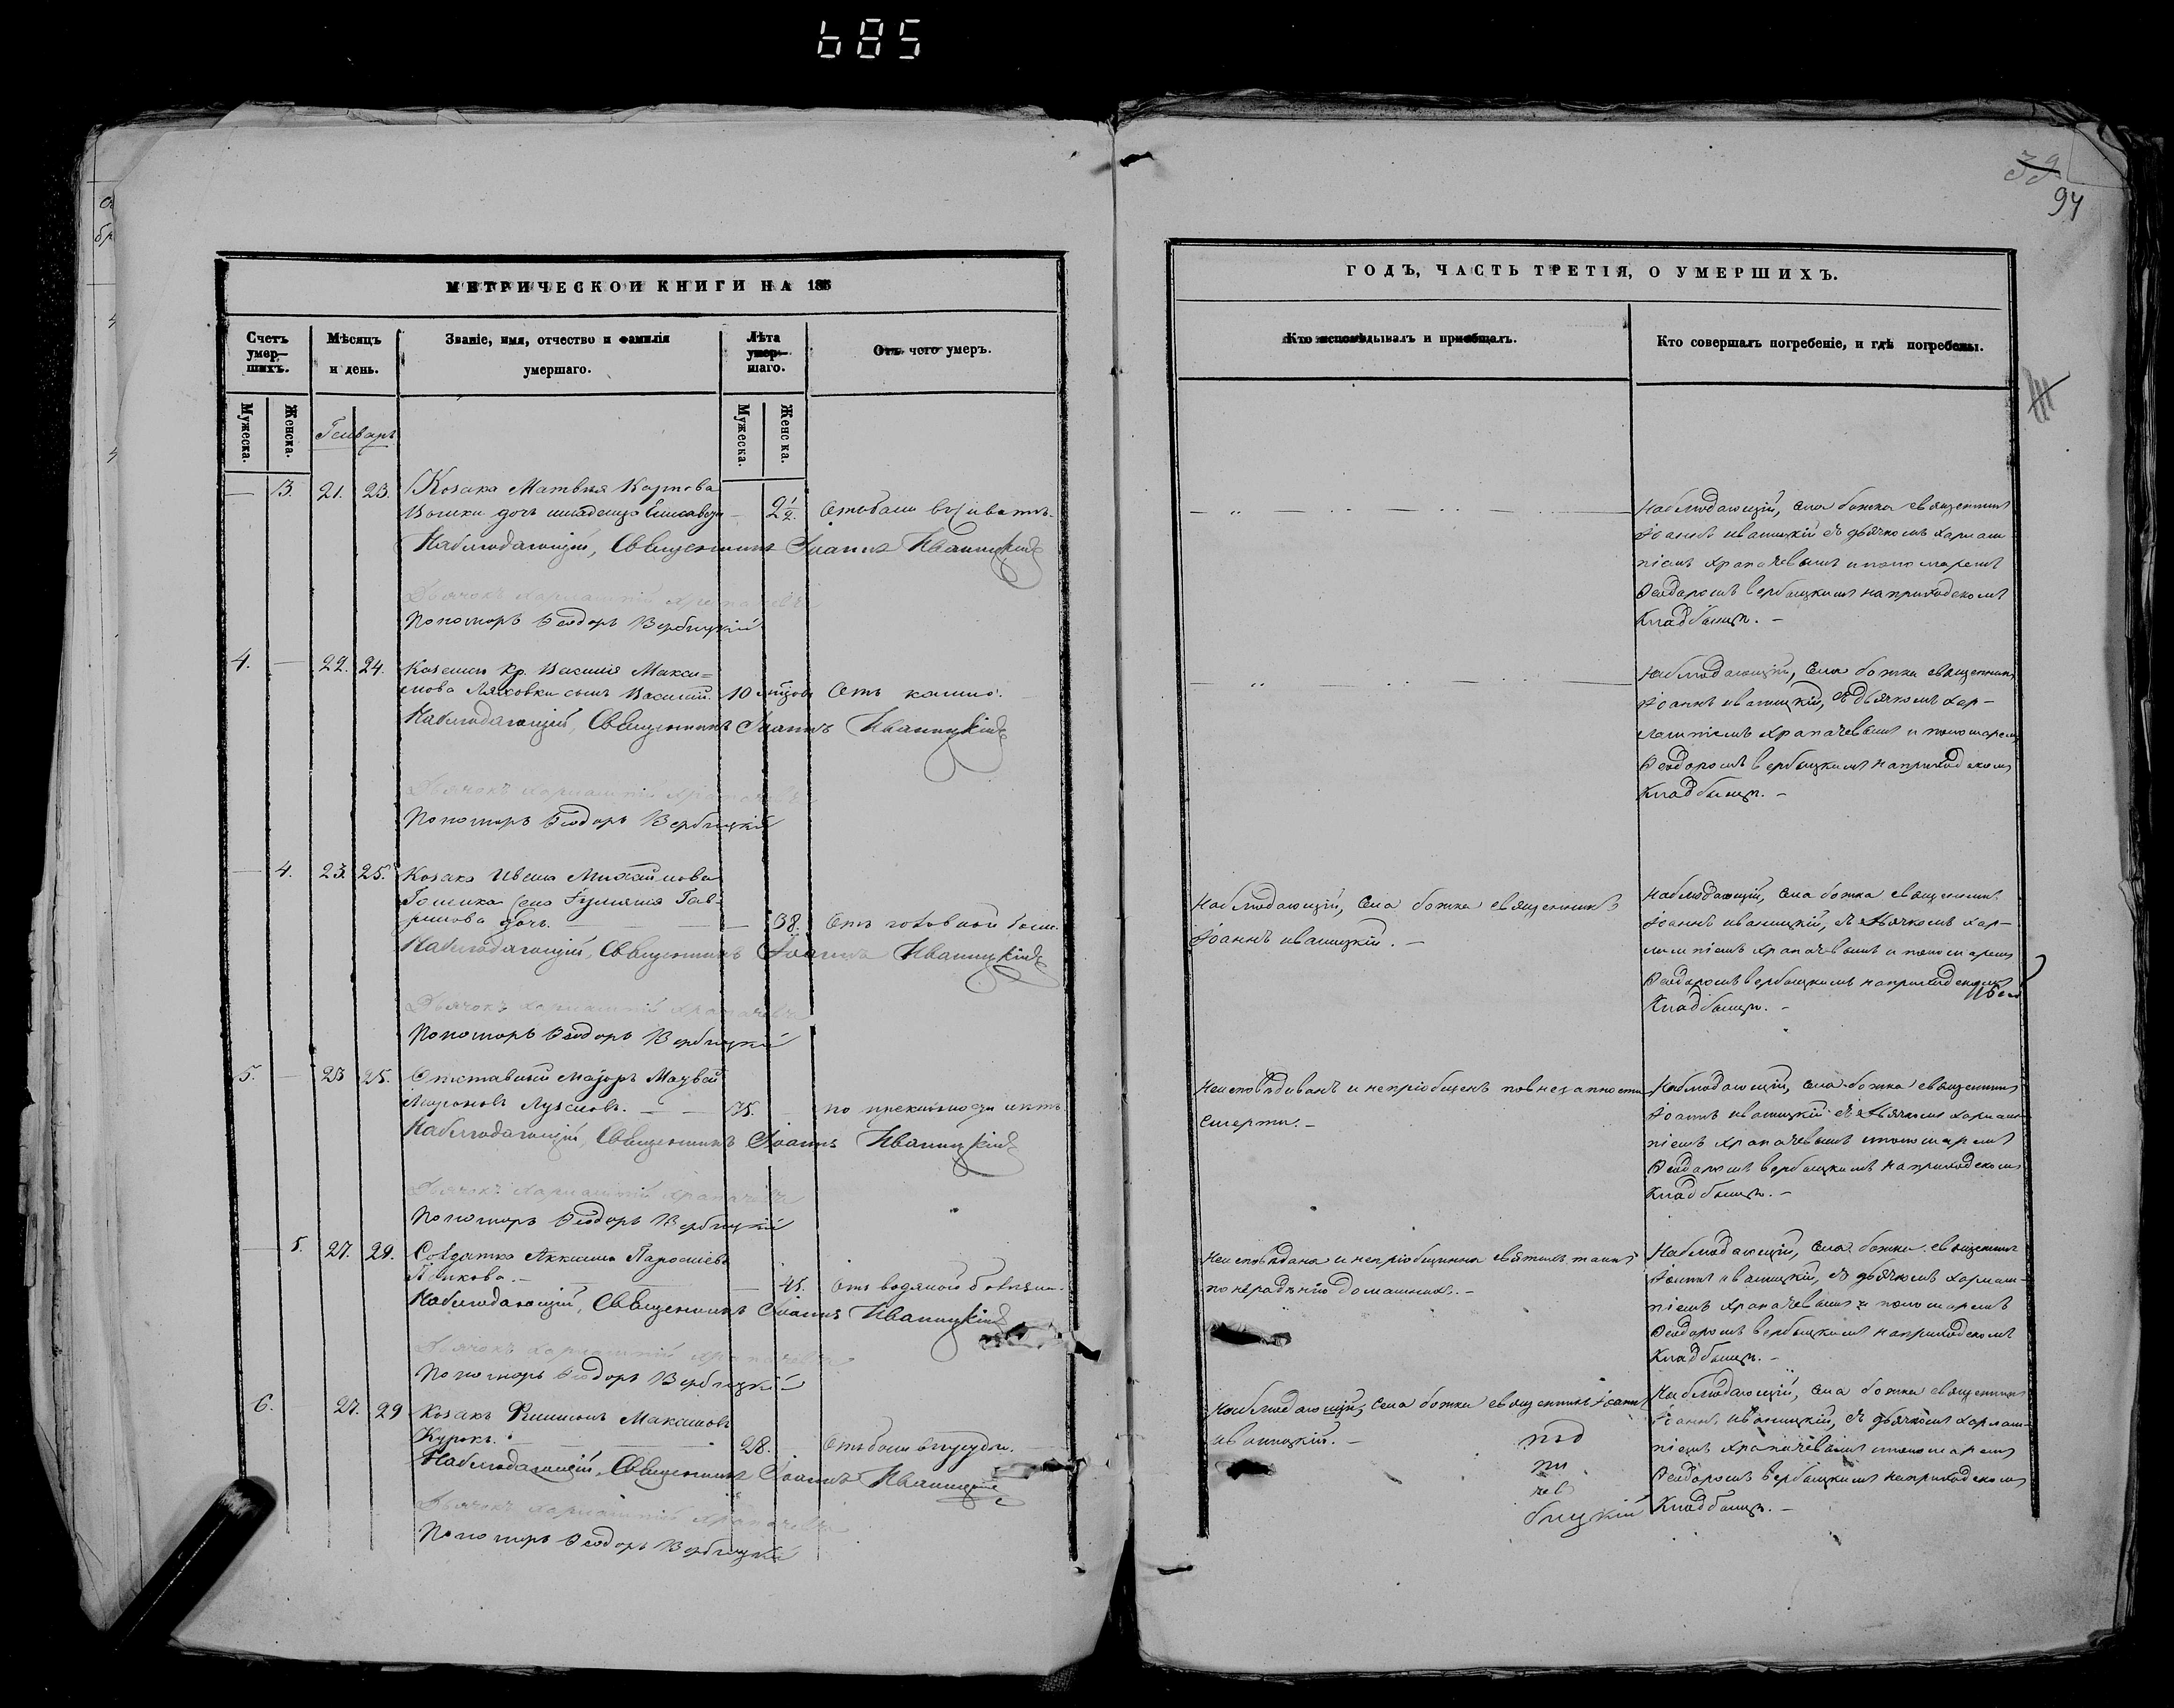 685
39
94
МЕТРИЧЕСКОЙ КНИГИ НА 185
Счетъ умер-шихъ.
Мѣсяцъ и день.
Званіе, имя, отчество и фамилія умершаго.
Лѣта умер-шаго.
Отъ чего умеръ.
Мужеска.
Женска.
Мужеска.
Женска.
Генварь
3. 21. 23. Козака Матвѣя Карпова
дочь младенца Елисавета 2½
Наблюдающій, Священникъ Іоаннъ Иваницкій
Дьячокъ Харлампій Храпачевъ
Пономарь Ѳеодоръ Вербицкій
4. 22. 24. Василія Макси=
мова Ляховки сынъ Василій. 10 Отъ кашлю.
Наблюдающій, Священникъ Іоаннъ Иваницкій
Дьячокъ Харлампій Храпачевъ
Пономарь Ѳеодоръ Вербицкій
4. 23. 25. Козака Ивана Михайлова
Гав-
рилова дочь. 38. Отъ головной боли.
Наблюдающій, Священникъ Іоаннъ Иваницкій
Дьячокъ Харлампій Храпачевъ
Пономарь Ѳеодоръ Вербицкій
5. 23 25. Отставной Маіоръ
75. по преклонности лѣтъ
Наблюдающій, Священникъ Іоаннъ Иваницкій
Дьячокъ Харлампій Храпачевъ
Пономарь Ѳеодоръ Вербицкій
5. 27. 29. Солдатка
45. Отъ водяной болѣзни.
Наблюдающій, Священникъ Іоаннъ Иваницкій
Дьячокъ Харлампій Храпачевъ
Пономарь Ѳеодоръ Вербицкій
6. 27. 29 Козакъ Филимонъ Максимовъ
28. Отъ боли
Наблюдающій, Священникъ Іоаннъ Иваницкій
Дьячокъ Харлампій Храпачевъ
Пономарь Ѳеодоръ Вербицкій
ГОДЪ, ЧАСТЬ ТРЕТІЯ, О УМЕРШИХЪ.
Кто исповѣдывалъ и пріобщалъ.
Кто совершалъ погребеніе, и гдѣ погребены.
Наблюдающій, села божка священникъ
Іоаннъ иваницкій съ дьячкомъ харлам
піемъ храпачевымъ и пономаремъ
Ѳеодоромъ вербицкимъ на приходскомъ
Кладбищѣ. -
Наблюдающій, села божка священникъ
Іоаннъ иваницкій, съ дьячкомъ хар-
лампіемъ храпачевымъ и пономаремъ
Ѳеодоромъ вербицкимъ на приходскомъ
Кладбищѣ. -
Наблюдающій, села божка священникъ
Іоаннъ иваницкій. -
Наблюдающій, села божка священникъ
Іоаннъ иваницкій, съ дьячкомъ хар-
лампіемъ храпачевымъ и пономаремъ
Ѳеодоромъ вербицкимъ на приходскомъ
Кладбищѣ. -
Неисповѣдыванъ и непріобщенъ по внезапности
смерти. -
Наблюдающій, села божка священникъ
Іоаннъ иваницкій съ дьячкомъ харлам-
піемъ храпачевымъ и пономаремъ
Ѳеодоромъ вербицкимъ на приходскомъ
Кладбищѣ. -
Неисповѣдана и непріобщенна святыхъ таинъ
по нерадѣнію домашнихъ. -
Наблюдающій, села божка священникъ
Іоаннъ иваницкій, съ дьячкомъ харлам-
піемъ храпачевымъ и пономаремъ
Ѳеодоромъ вербицкимъ на приходскомъ
Кладбищѣ. -
Наблюдающій, села божка священникъ Іоаннъ
иваницкій. -
Наблюдающій, села божка священникъ
Іоаннъ иваницкій, съ дьячкомъ харлам-
піемъ храпачевымъ и пономаремъ
Ѳеодоромъ вербицкимъ на приходскомъ
Кладбищѣ. -
бицкій